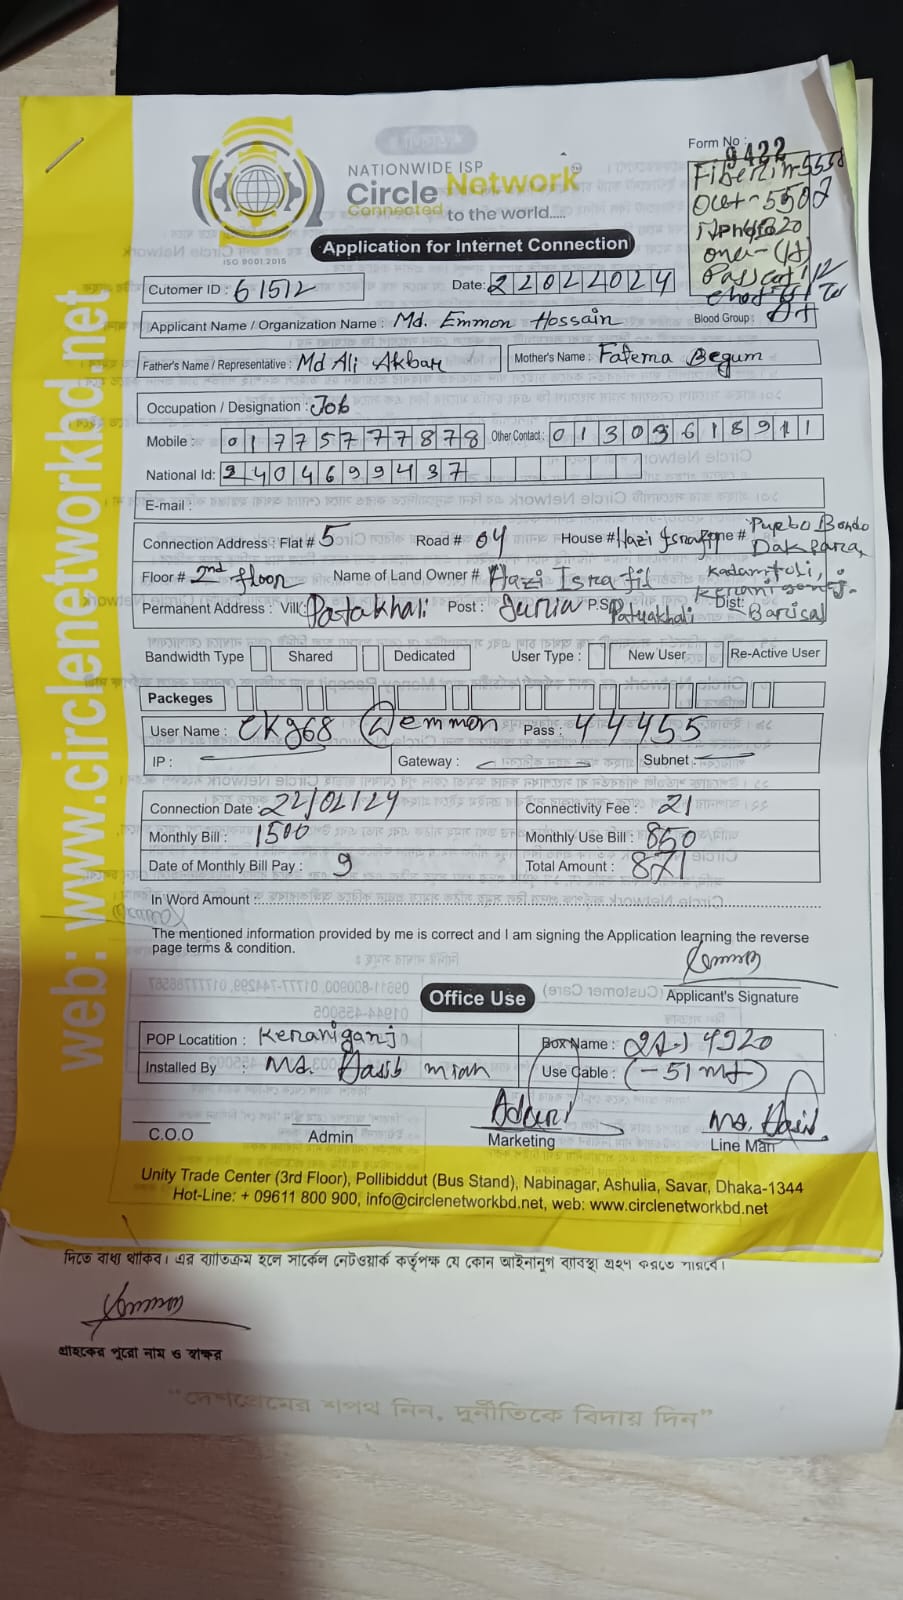 web: www.circlenetworkbd.net
NATIONWIDE ISP
Circle Network
Connected to the world.....
ISO 9001:2015
Form No : 9422
Application for Internet Connection
Cutomer ID : 61512
Date: 22022024
Applicant Name / Organization Name : Md. Emmon Hossain
Blood Group :
Father's Name / Representative : Md Ali Akbar
Mother's Name : Fatema Begum
Occupation / Designation : Job
Mobile : 01775777878 Other Contact : 01309618911
National Id: 2404699437
E-mail :
Connection Address : Flat # 5 Road # 04 House # Hazi Zone # Purbo Bondo Dakpara,
Floor # 2nd floor Name of Land Owner # Hazi Isra fil Kadamtoli,
Permanent Address : Vill: Patakhali Post : Juria P.S: Patuakhali Dist: Barisal
Bandwidth Type Shared Dedicated User Type : New User Re-Active User
Packeges
User Name : ckg68 @emmon Pass : 44455
IP : Gateway : Subnet :
Connection Date : 22/02/24 Connectivity Fee : 21
Monthly Bill : 1500 Monthly Use Bill : 850
Date of Monthly Bill Pay : 9 Total Amount : 871
In Word Amount :
The mentioned information provided by me is correct and I am signing the Application learning the reverse
page terms & condition.
Applicant's Signature
Office Use
POP Locatition : Keraniganj Box Name :
Installed By : Md. Hasib mian Use Cable : (-51 mt)
C.O.O Admin Marketing Line Man
Unity Trade Center (3rd Floor), Pollibiddut (Bus Stand), Nabinagar, Ashulia, Savar, Dhaka-1344
Hot-Line: + 09611 800 900, info@circlenetworkbd.net, web: www.circlenetworkbd.net
দিতে বাধ্য থাকিব। এর ব্যতিক্রম হলে সার্কেল নেটওয়ার্ক কর্তৃপক্ষ যে কোন আইনানুগ ব্যাবস্থা গ্রহণ করতে পারবে।
গ্রাহকের পুরো নাম ও স্বাক্ষর
“দেশপ্রেমের শপথ নিন, দুর্নীতিকে বিদায় দিন”